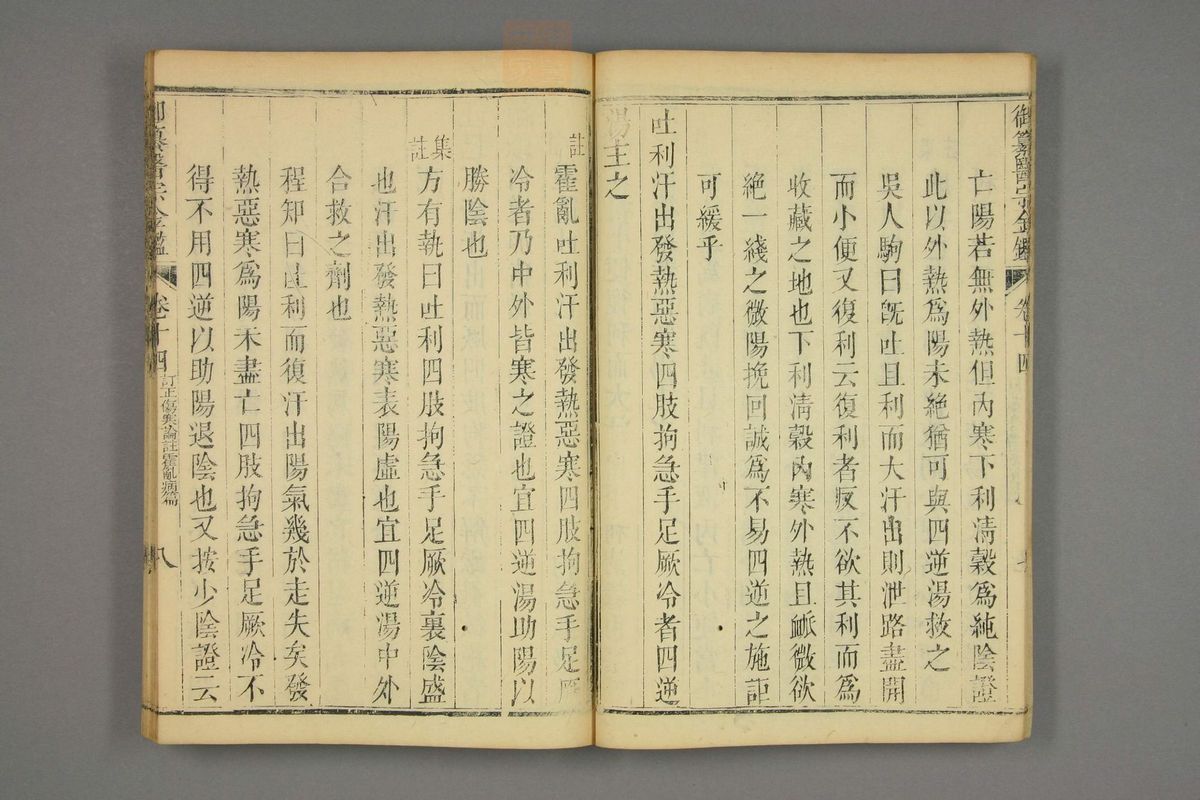 御纂醫宗金鑑
卷十四
亡陽若無外熱但內寒下利清穀爲純陰證
此以外熱爲陽未絕猶可與四逆湯救之
吳人駒曰旣吐且利而大汗出則泄路盡開
而小便又復利云復利者反不欲其利而爲
收藏之地也下利清穀內寒外熱且脈微欲
絕一綫之微陽挽回誠爲不易四逆之施詎
可緩乎
吐利汗出發熱惡寒四肢拘急手足厥冷者四逆
湯主之
註
霍亂吐利汗出發熱惡寒四肢拘急手足厥
冷者乃中外皆寒之證也宜四逆湯助陽以
勝陰也
集註
方有執曰吐利四肢拘急手足厥冷裏陰盛
也汗出發熱惡寒表陽虛也宜四逆湯中外
合救之劑也
程知曰吐利而復汗出陽氣幾於走失矣發
熱惡寒爲陽未盡亡四肢拘急手足厥冷不
得不用四逆以助陽退陰也又按少陰證云
御纂醫宗金鑑
卷十四
訂正傷寒論註霍亂病篇
八